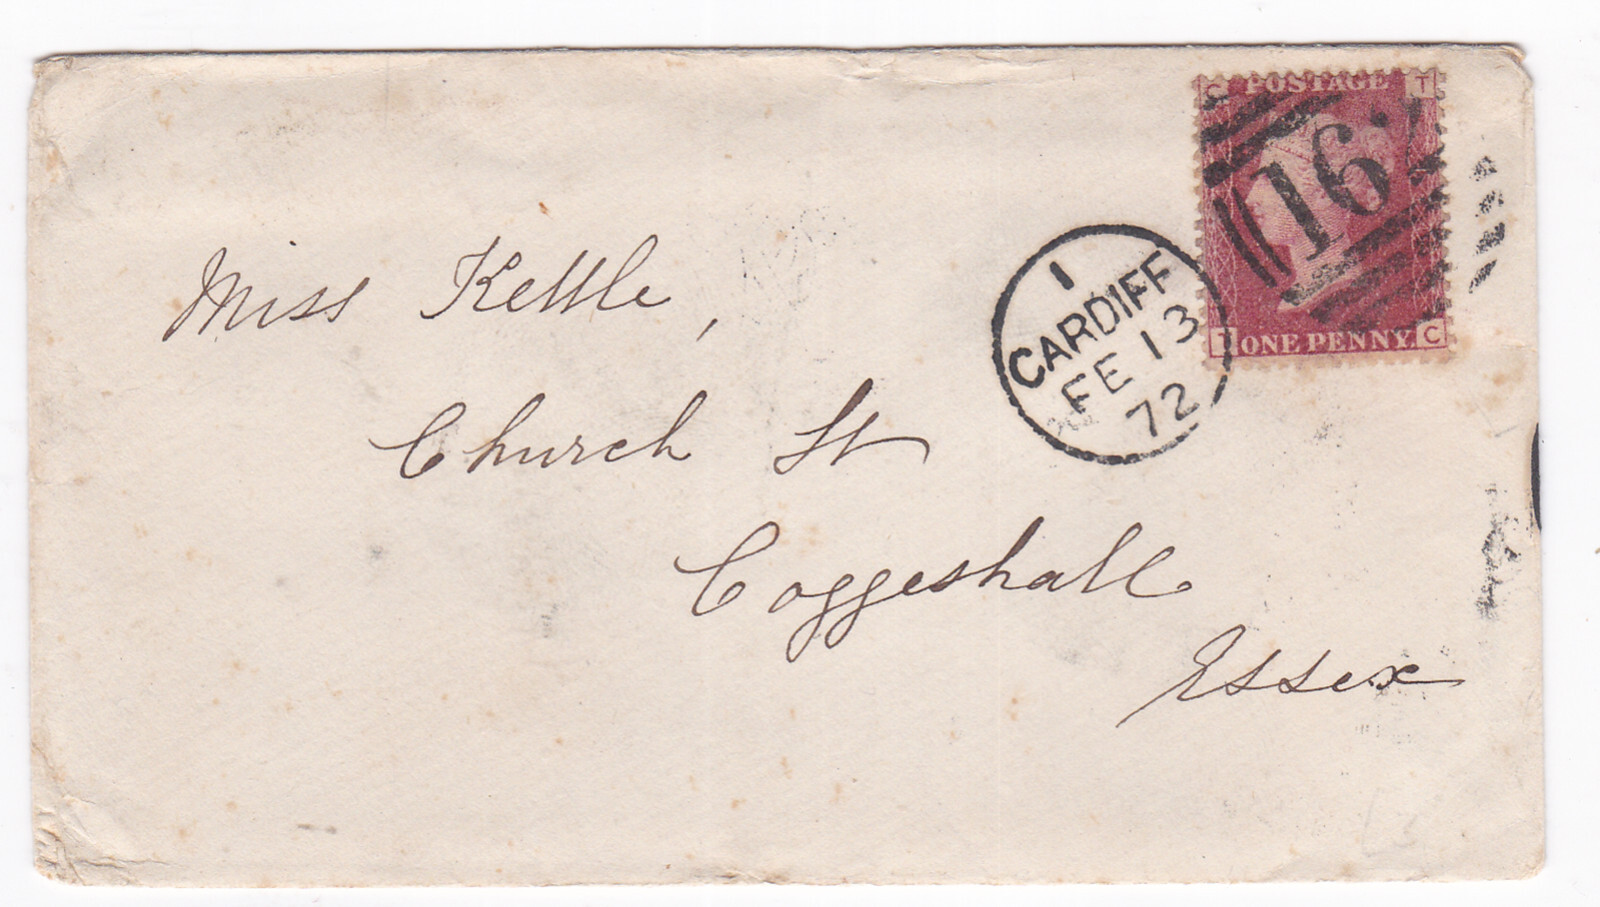 C POSTAGE T
162
T ONE PENNY. C
1
CARDIFF
FE 13
72
Miss Kettle,
Church St
Coggeshall
Essex